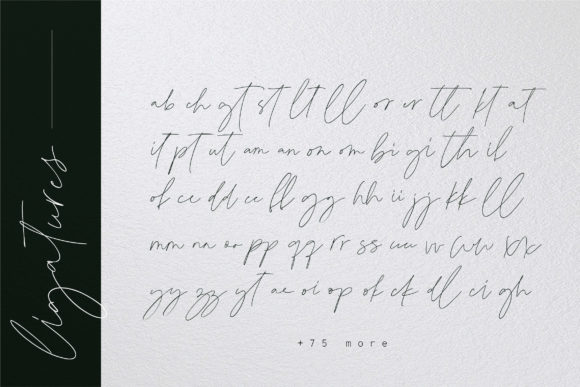 ligatures
ab ch gt st lt ll or er tt kt at
it pt ut am an on om bi gi th il
of ce dd ee fl gg hh ii jj kk ll
mm nn oo pp qq rr ss uu vv ww xx
yy zz yt ae oi op of ck dl ci gh
+75 more